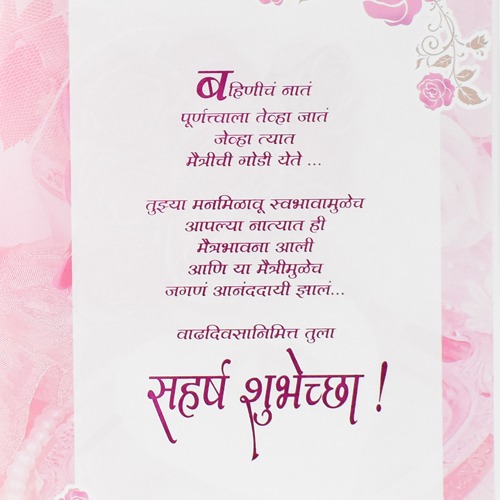 बहिणीचं नातं
पूर्णत्त्वाला तेव्हा जातं
जेव्हा त्यात
मैत्रीची गोडी येते ...
तुझ्या मनमिळावू स्वभावामुळेच
आपल्या नात्यात ही
मैत्रभावना आली
आणि या मैत्रीमुळेच
जगणं आनंददायी झालं...
वाढदिवसानिमित्त तुला
सहर्ष शुभेच्छा !